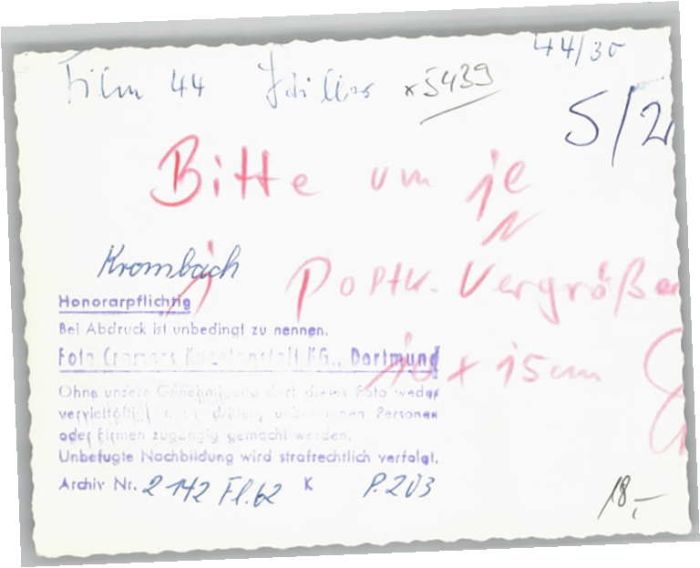 44/30
Film 44 x5439
S/2
Bitte um je
Krombach
Postk. Vergröße
Honorarpflichtig
Bei Abdruck ist unbedingt zu nennen.
Foto Cramers Kunstanstalt KG., Dortmund
10 x 15 cm
Ohne unsere Genehmigung darf dieses Foto weder
vervielfältigt noch dritten Personen
oder Firmen zugängig gemacht werden.
Unbefugte Nachbildung wird strafrechtlich verfolgt.
Archiv Nr. 2142 Fl.62 K P.203
18,-